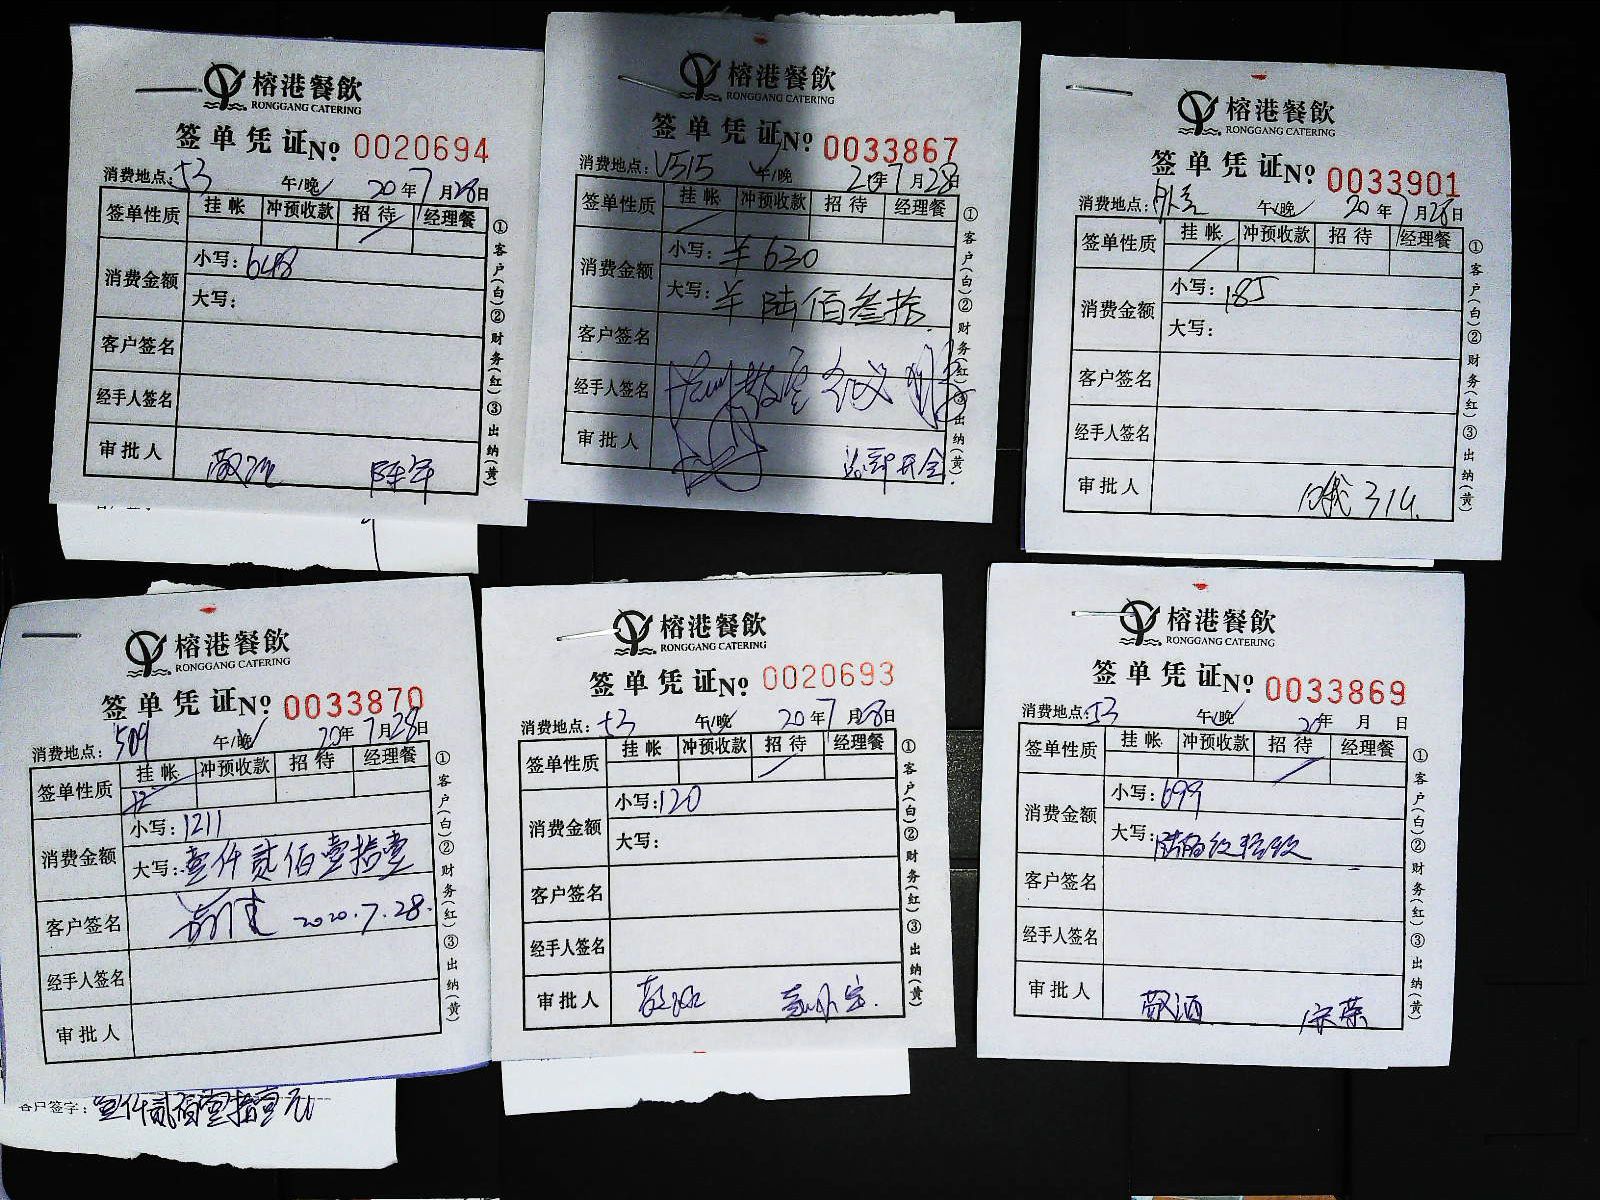 榕港餐飲
RONGGANG CATERING
签单凭证№ 0020694
消费地点: 午/晚 20年7月28日
签单性质 挂帐 冲预收款 招待 经理餐
消费金额 小写: 648
大写:
客户签名
经手人签名
审批人
①客户(白)②财务(红)③出纳(黄)
榕港餐飲
RONGGANG CATERING
签单凭证№ 0033867
消费地点: V515 午/晚 20年7月28日
签单性质 挂帐 冲预收款 招待 经理餐
消费金额 小写: 羊630
大写: 羊陆佰叁拾
客户签名
经手人签名
审批人
①客户(白)②财务(红)③出纳(黄)
榕港餐飲
RONGGANG CATERING
签单凭证№ 0033901
消费地点: 午/晚 20年7月28日
签单性质 挂帐 冲预收款 招待 经理餐
消费金额 小写: 185
大写:
客户签名
经手人签名
审批人 314
①客户(白)②财务(红)③出纳(黄)
榕港餐飲
RONGGANG CATERING
签单凭证№ 0033870
消费地点: 509 午/晚 20年7月28日
签单性质 挂帐 冲预收款 招待 经理餐
消费金额 小写: 1211
大写: 壹仟贰佰壹拾壹
客户签名 2020.7.28.
经手人签名
审批人
①客户(白)②财务(红)③出纳(黄)
客户签字: 壹仟贰佰壹拾壹元
榕港餐飲
RONGGANG CATERING
签单凭证№ 0020693
消费地点: 午/晚 20年7月28日
签单性质 挂帐 冲预收款 招待 经理餐
消费金额 小写: 120
大写:
客户签名
经手人签名
审批人
①客户(白)②财务(红)③出纳(黄)
榕港餐飲
RONGGANG CATERING
签单凭证№ 0033869
消费地点: 午/晚 20年 月 日
签单性质 挂帐 冲预收款 招待 经理餐
消费金额 小写: 699
大写:
客户签名
经手人签名
审批人 敬酒 宋荣
①客户(白)②财务(红)③出纳(黄)